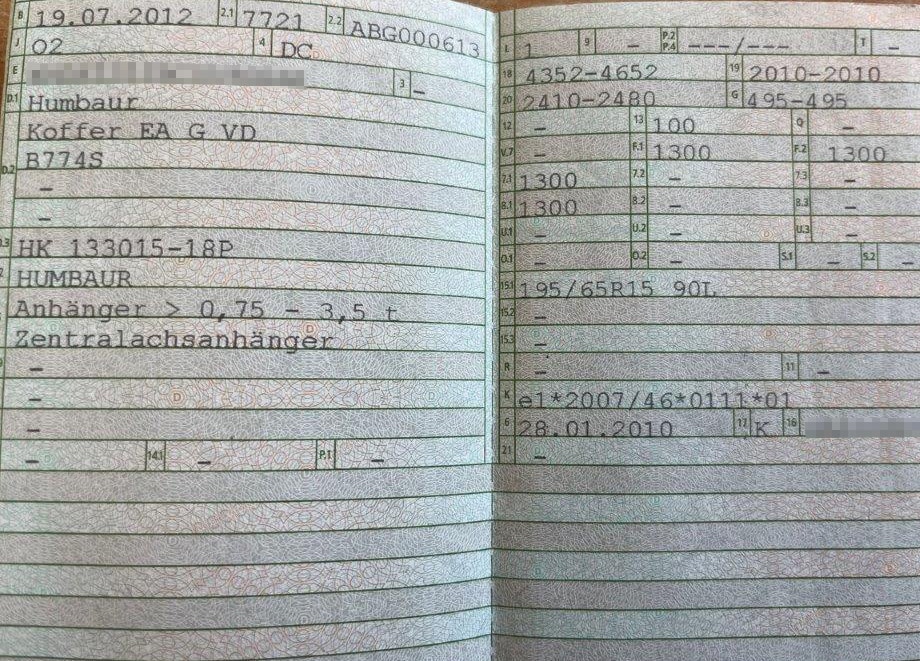 B 19.07.2012 2.1 7721 2.2 ABG000613
J O2 4 DC
E 3 –
D.1 Humbaur
Koffer EA G VD
D.2 B774S
–
–
D.3 HK 133015-18P
2 HUMBAUR
Anhänger > 0,75 – 3,5 t
Zentralachsanhänger
–
–
–
– 14.1 – P.1 –
L 1 9 – P.2 P.4 ---/--- T –
18 4352-4652 19 2010-2010
20 2410-2480 G 495-495
12 – 13 100 Q –
V.7 – F.1 1300 F.2 1300
7.1 1300 7.2 – 7.3 –
8.1 1300 8.2 – 8.3 –
U.1 – U.2 – U.3 –
O.1 – O.2 – S.1 – S.2 –
15.1 195/65R15 90L
15.2 –
15.3 –
R – 11 –
K e1*2007/46*0111*01
6 28.01.2010 17 K 16
21 –